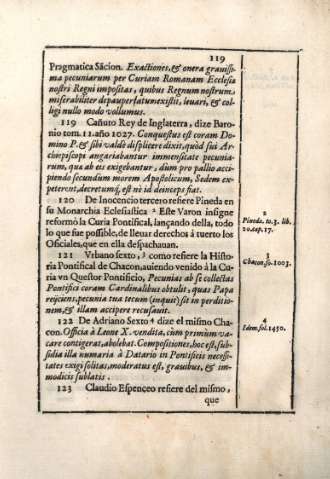 119
Pragmatica Sãcion. Exactiones, & onera grauissi-
ma pecuniarum per Curiam Romanam Ecclesiæ
nostri Regni impositas, quibus Regnum nostrum,
miserabiliter depauperatum existit, leuari, & col-
ligi nullo modo volumus.
119 Cañuto Rey de Inglaterra, dize Baro-
nio tom. 11. año 1027. Conquestus est coram Do-
mino P. & sibi valdè displicere dixit, quòd sui Ar-
chiepiscopi angariabantur immensitate pecunia-
rum, qua ab eis exigebantur, dùm pro pallio acci-
piendo secundum morem Apostolicum, Sedem ex-
peterent, decretumq́; est nè id deinceps fiat.
120 De Inocencio tercero refiere Pineda en
su Monarchia Eclesiastica 2 Este Varon insigne
reformò la Curia Pontifical, lançando della, todo
lo que fue possible, de lleuar derechos à tuerto los
Oficiales, que en ella despachauan.
2
Pineda. to. 3. lib.
20. cap. 17.
121 Vrbano sexto, 3 como refiere la Histo-
ria Pontifical de Chacon, auiendo venido à la Cu-
ria vn Questor Pontificio, Pecunias ab se collectas
Pontifici coram Cardinalibus obtulit, quas Papa
reijciens, pecunia tua tecum (inquit) sit in perditio-
nem, & illam accipere recusauit.
3
Chacon. fol. 1003.
122 De Adriano Sexto 4 dize el mismo Cha-
con. Officia à Leone X. vendita, cùm primùm va-
care contigerat, abolebat. Compositiones, hoc est, sub-
sidia illa numaria à Datario in Pontificis necessi-
tates exigi solitas, moderatus est, grauibus, & im-
modicis sublatis.
4
Idem, fol. 1430.
123 Claudio Espenceo refiere del mismo,
que